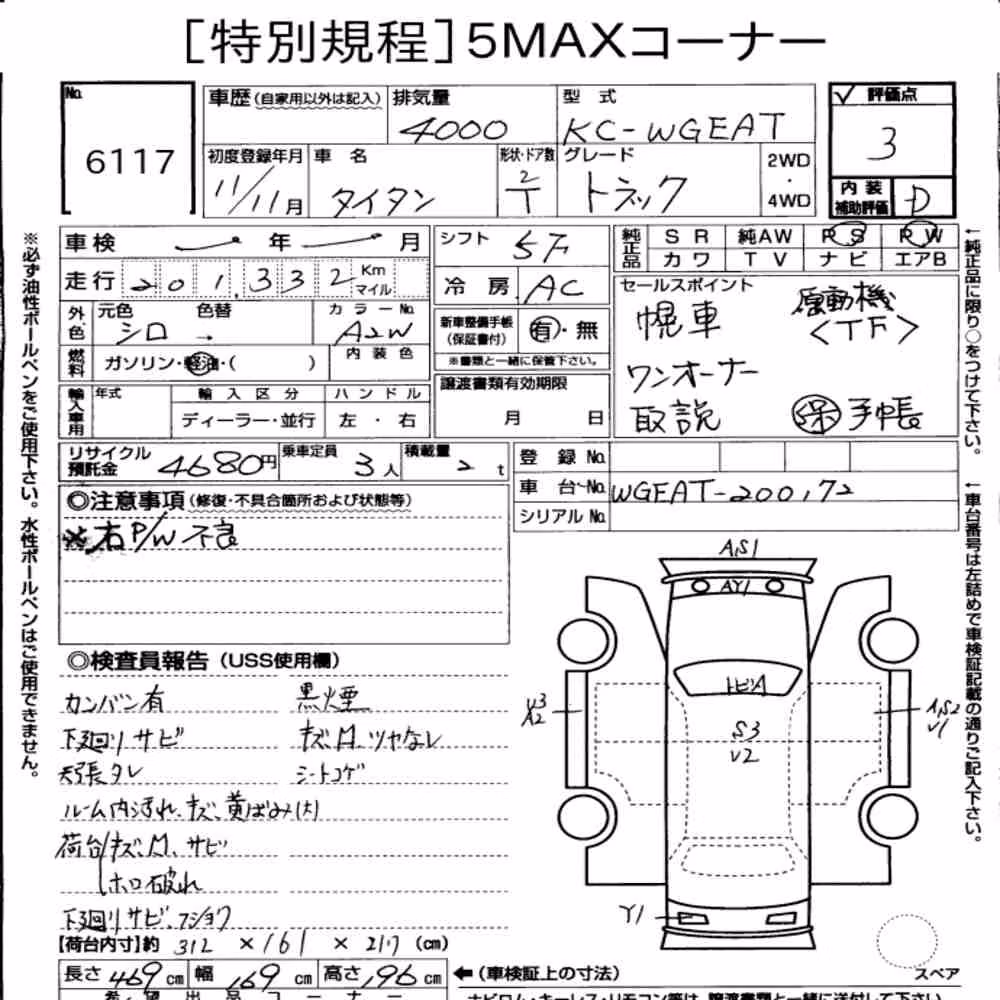 [特別規程]5MAXコーナー
No. 6117
車歴(自家用以外は記入)
排気量 4000
型式 KC-WGEAT
✓ 評価点 3
初度登録年月 11/11月
車名 タイタン
形状・ドア数 2 T
グレード トラック
2WD・4WD
内装補助評価 D
車検 年 月
シフト 5F
純正品 SR 純AW PS PW
カワ TV ナビ エアB
走行 201,332 Km マイル
冷房 AC
セールスポイント
幌車 原動機<TF>
ワンオーナー
取説 保 手帳
外色 元色 シロ 色替 →
カラーNo. A2W
新車整備手帳(保証書付) 有・無
※書類と一緒に保管下さい。
燃料 ガソリン・軽油・( )
内装色
譲渡書類有効期限 月 日
輸入車用 年式 輸入区分 ハンドル
ディーラー・並行 左・右
リサイクル預託金 4680円
乗車定員 3人
積載量 2t
登録No.
車台No. WGEAT-200172
シリアルNo.
◎注意事項(修復・不具合箇所および状態等)
※右P/W不良
◎検査員報告(USS使用欄)
カンバン有 黒煙
下廻りサビ キズ、凹、ツヤなし
天張タレ シートコゲ
ルーム内汚れ、キズ、黄ばみ(大)
荷台 キズ、凹、サビ
ホロ破れ
下廻りサビ、フショク
【荷台内寸】約 312 × 161 × 217 (cm)
長さ 469cm 幅 169cm 高さ 196cm
←(車検証上の寸法)
希望出品コーナー
A,S1
AY1
トビA
S3
V2
A2
A,S2
V1
Y1
スペア
※必ず油性ボールペンをご使用下さい。水性ボールペンはご使用できません。
←純正品に限り○をつけて下さい。
←車台番号は左詰めで車検証記載の通りご記入下さい。